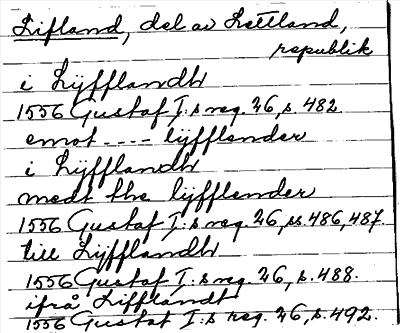 Lifland, del av Lettland,
republik
i Lÿfflandh
1556 Gustaf I:s reg. 26, s. 482
emot ---- lÿfflender
i Lÿfflandh
medt the lÿfflender
1556 Gustaf I:s reg. 26, ss. 486, 487.
till Lÿfflandh
1556 Gustaf I:s reg. 26, s. 488.
ifrå Lifflandt
1556 Gustaf I:s reg. 26, s. 492.